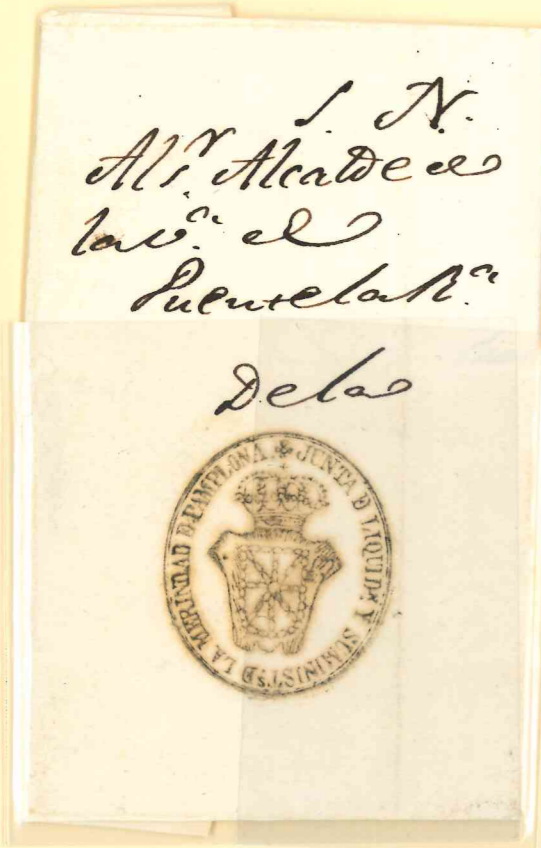 S. N.
Al sr. Alcalde de
la va. de
Puente la Ra.
De la
JUNTA D LIQUIDn. Y SUMINISTs. D LA MERINDAD D PAMPLONA